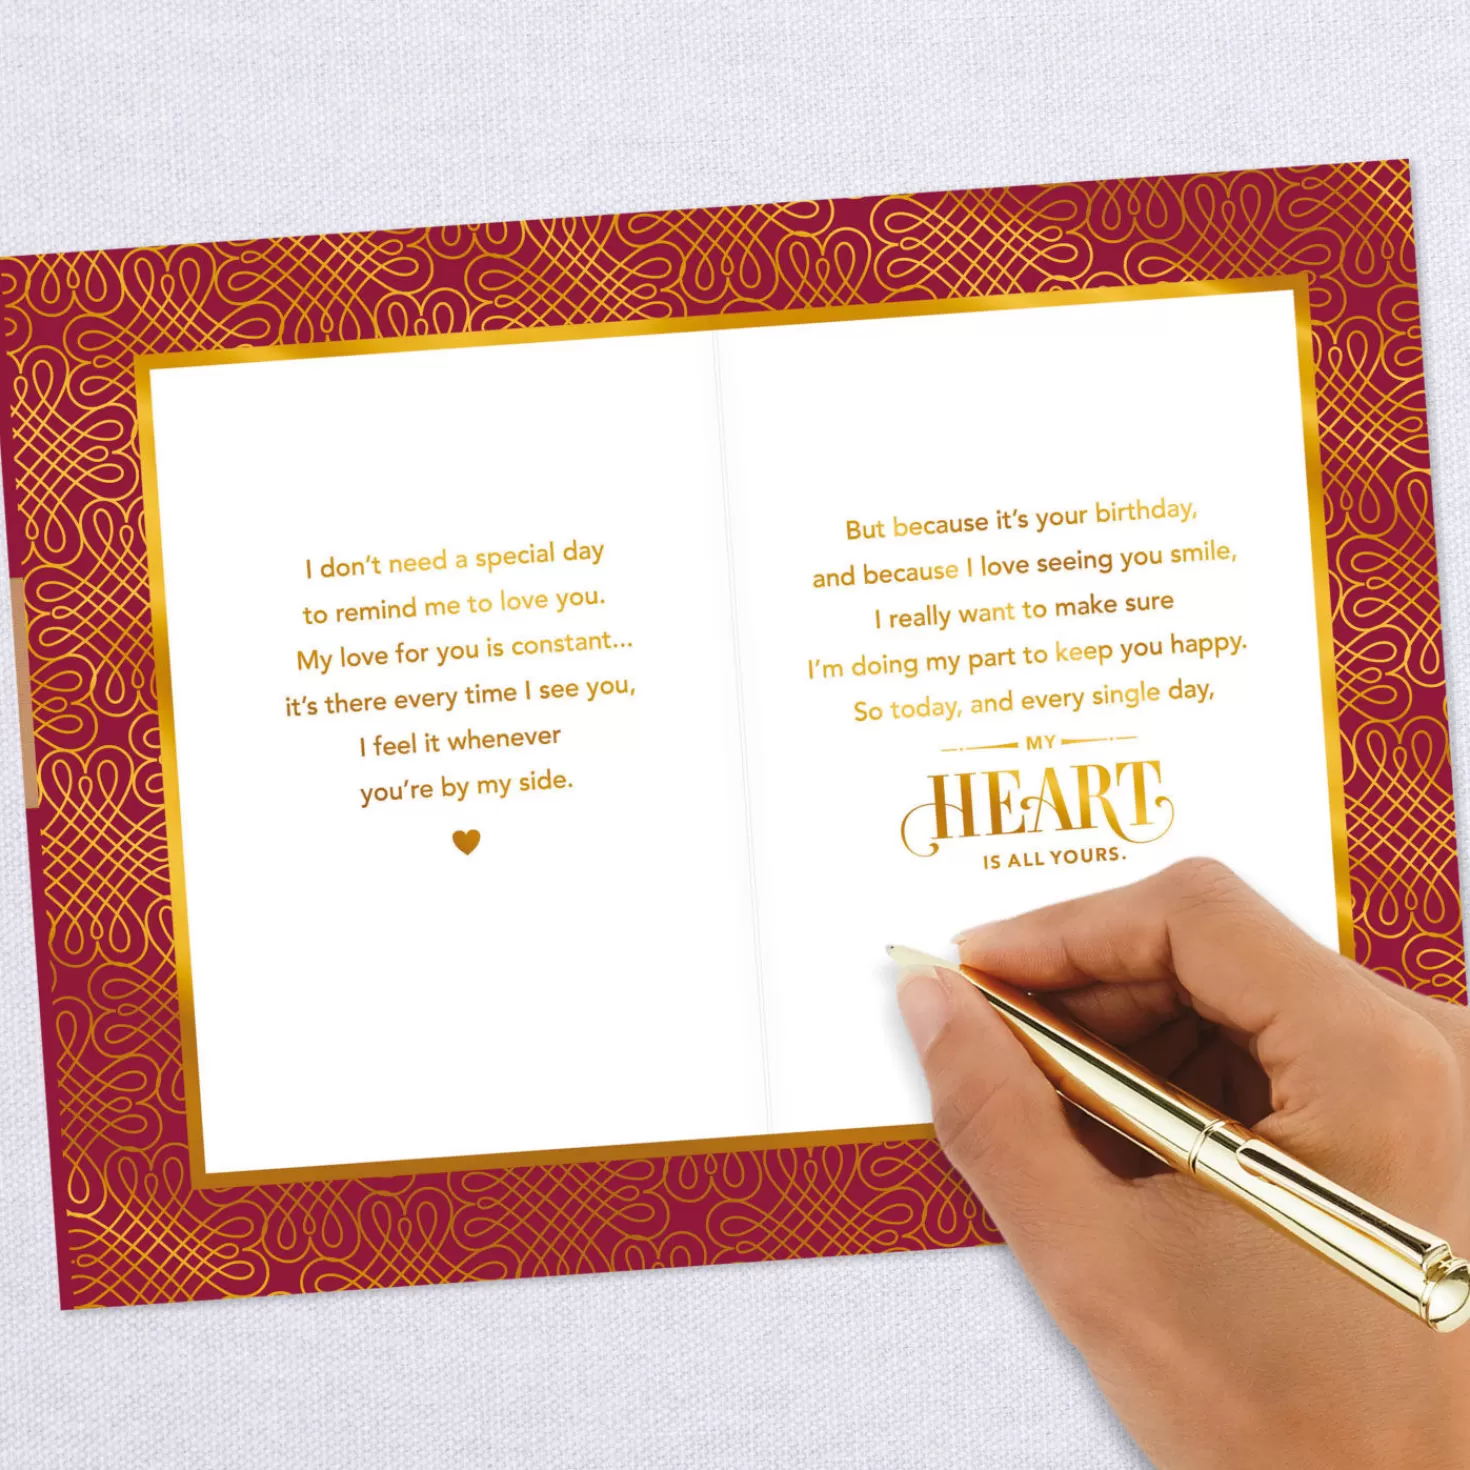 I don't need a special day
to remind me to love you.
My love for you is constant...
it's there every time I see you,
I feel it whenever
you're by my side.
But because it's your birthday,
and because I love seeing you smile,
I really want to make sure
I'm doing my part to keep you happy.
So today, and every single day,
MY
HEART
IS ALL YOURS.